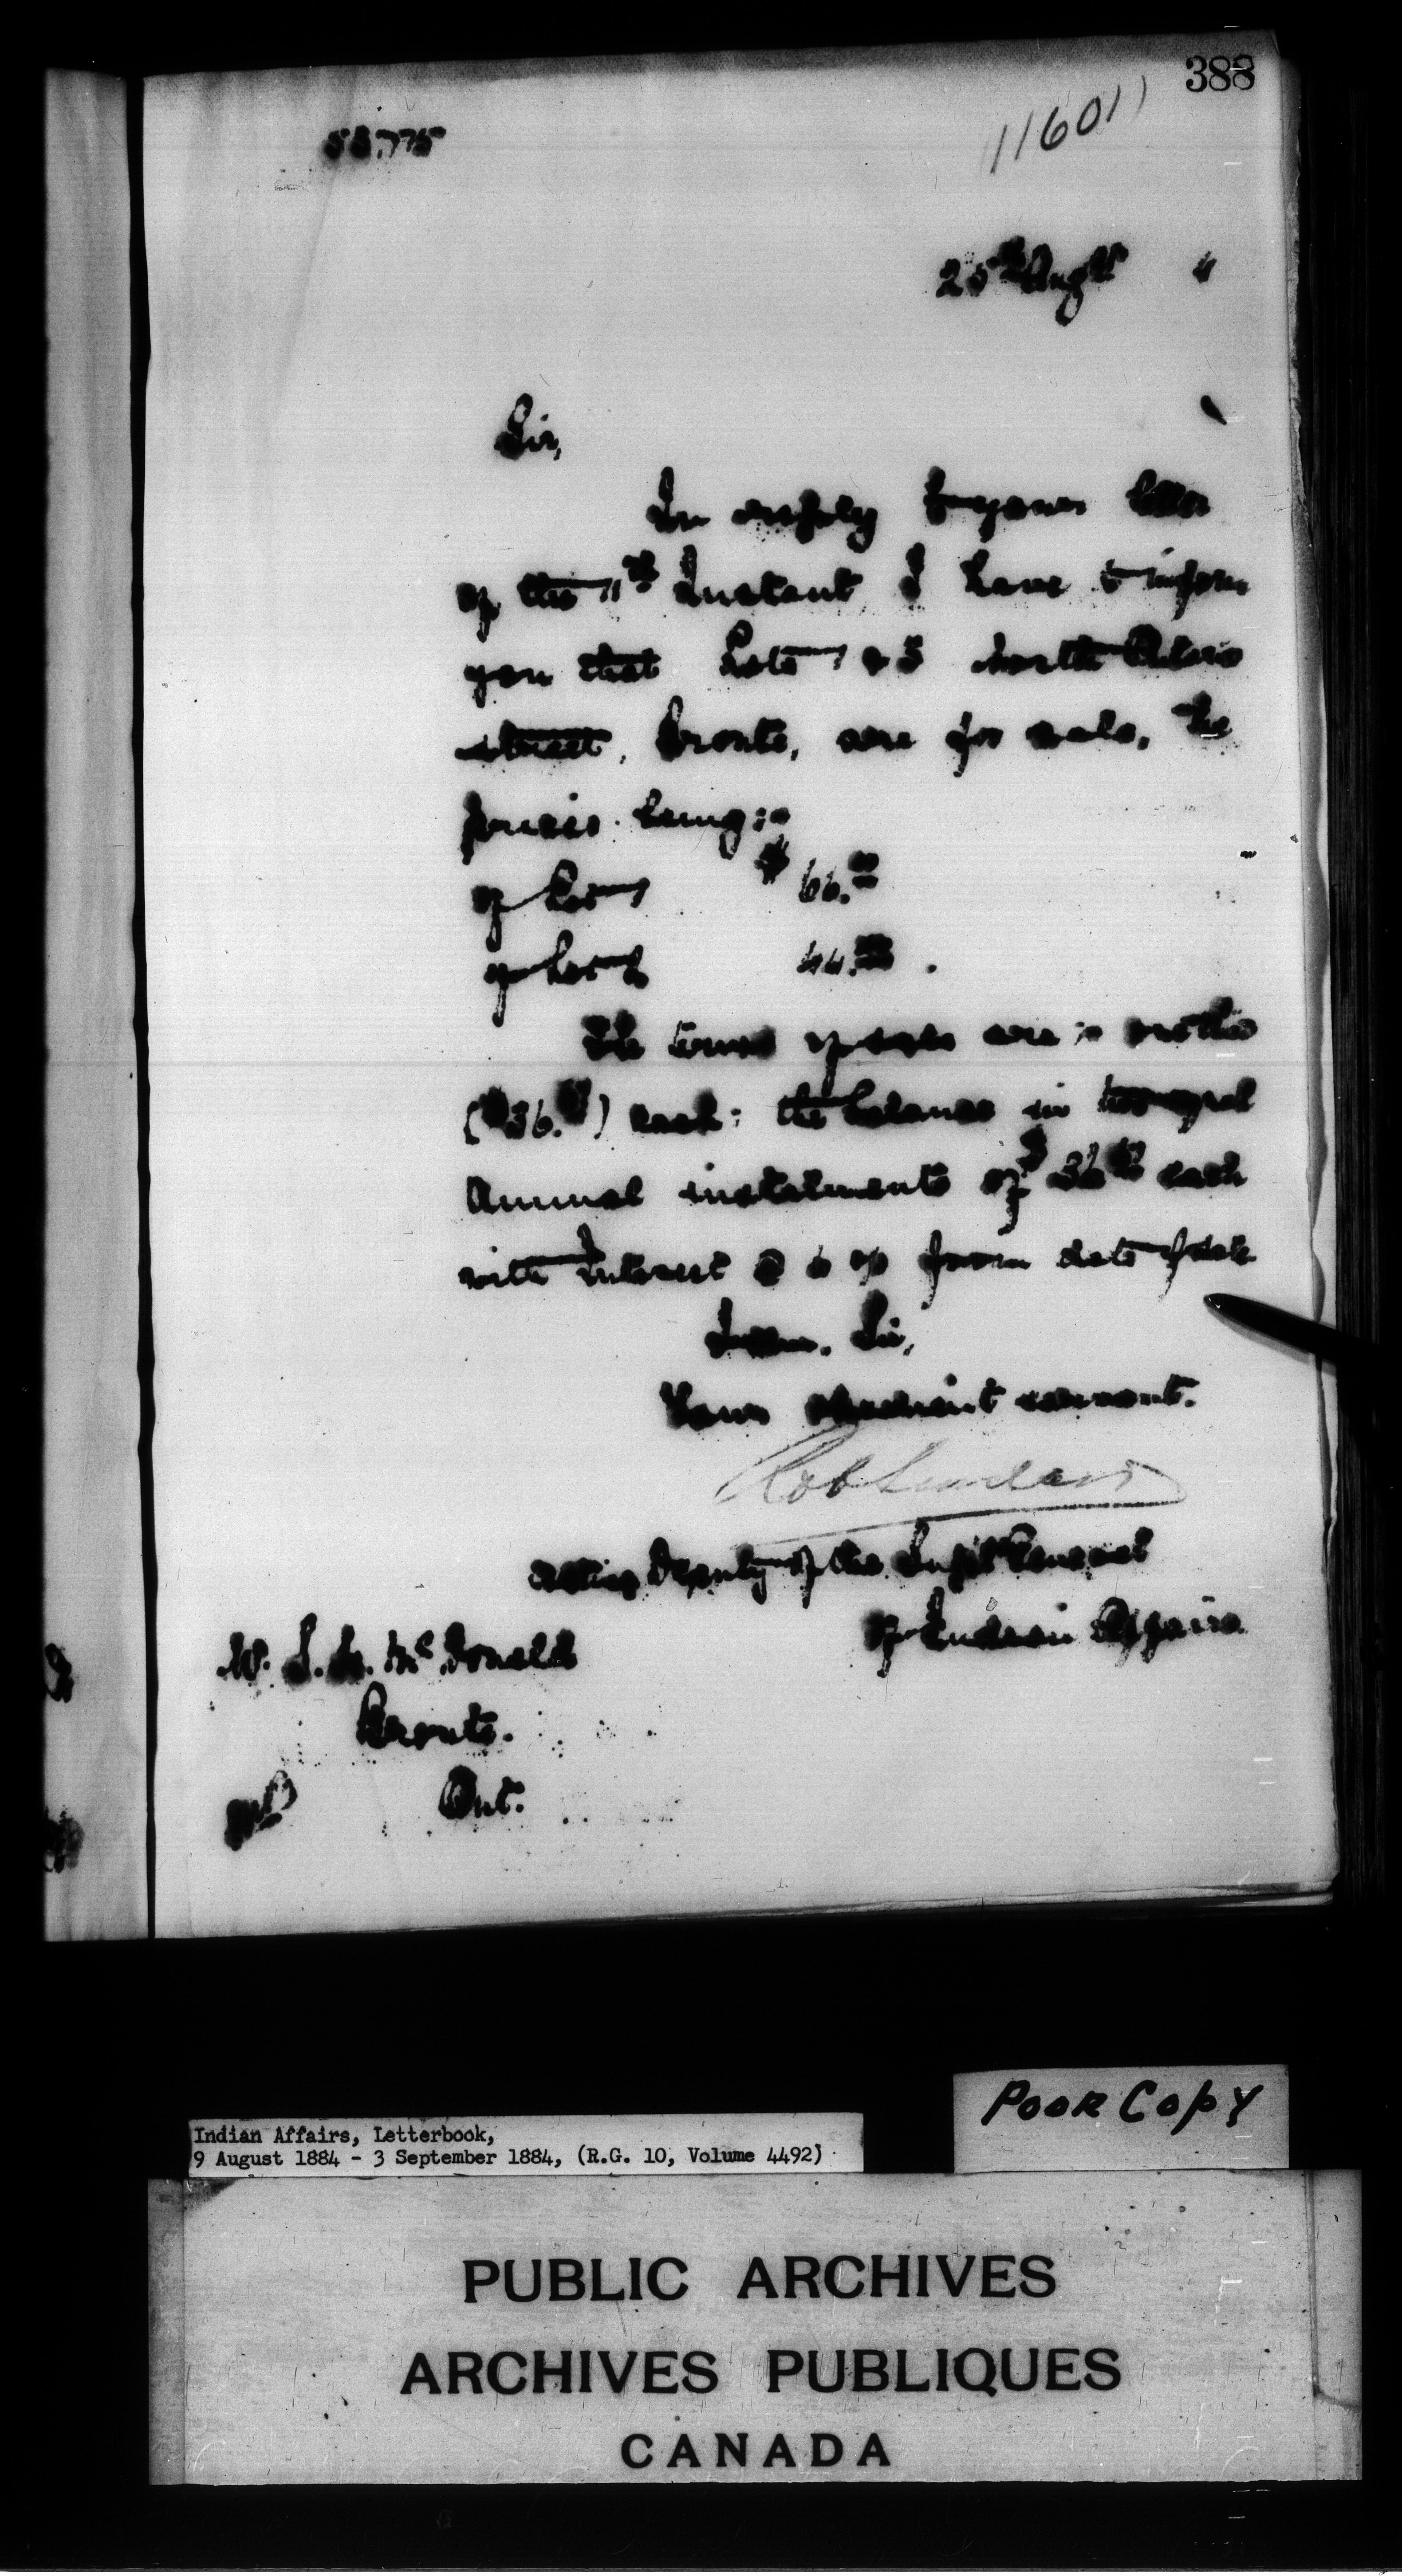 388
11601
25th Augst "
Sir,
In reply to your letter
of the 11th Instant I have to inform
you that Lots 1 & 3 north
street, Bronte, are for sale, the
prices being:-
of Lot 1 $ 66.00
of Lot 44.00.
The terms of sale are:-
($36.) cash; the balance in two equal
Annual instalments of $36 each
with Interest @ 6 % from date of sale
Sir,
Your obedient servant.
Rob Sinclair
Acting Deputy of the Supt General
of Indian Affairs.
W. McDonald
Bronte.
Ont.
Poor Copy
Indian Affairs, Letterbook,
9 August 1884 - 3 September 1884, (R.G. 10, Volume 4492)
PUBLIC ARCHIVES
ARCHIVES PUBLIQUES
CANADA